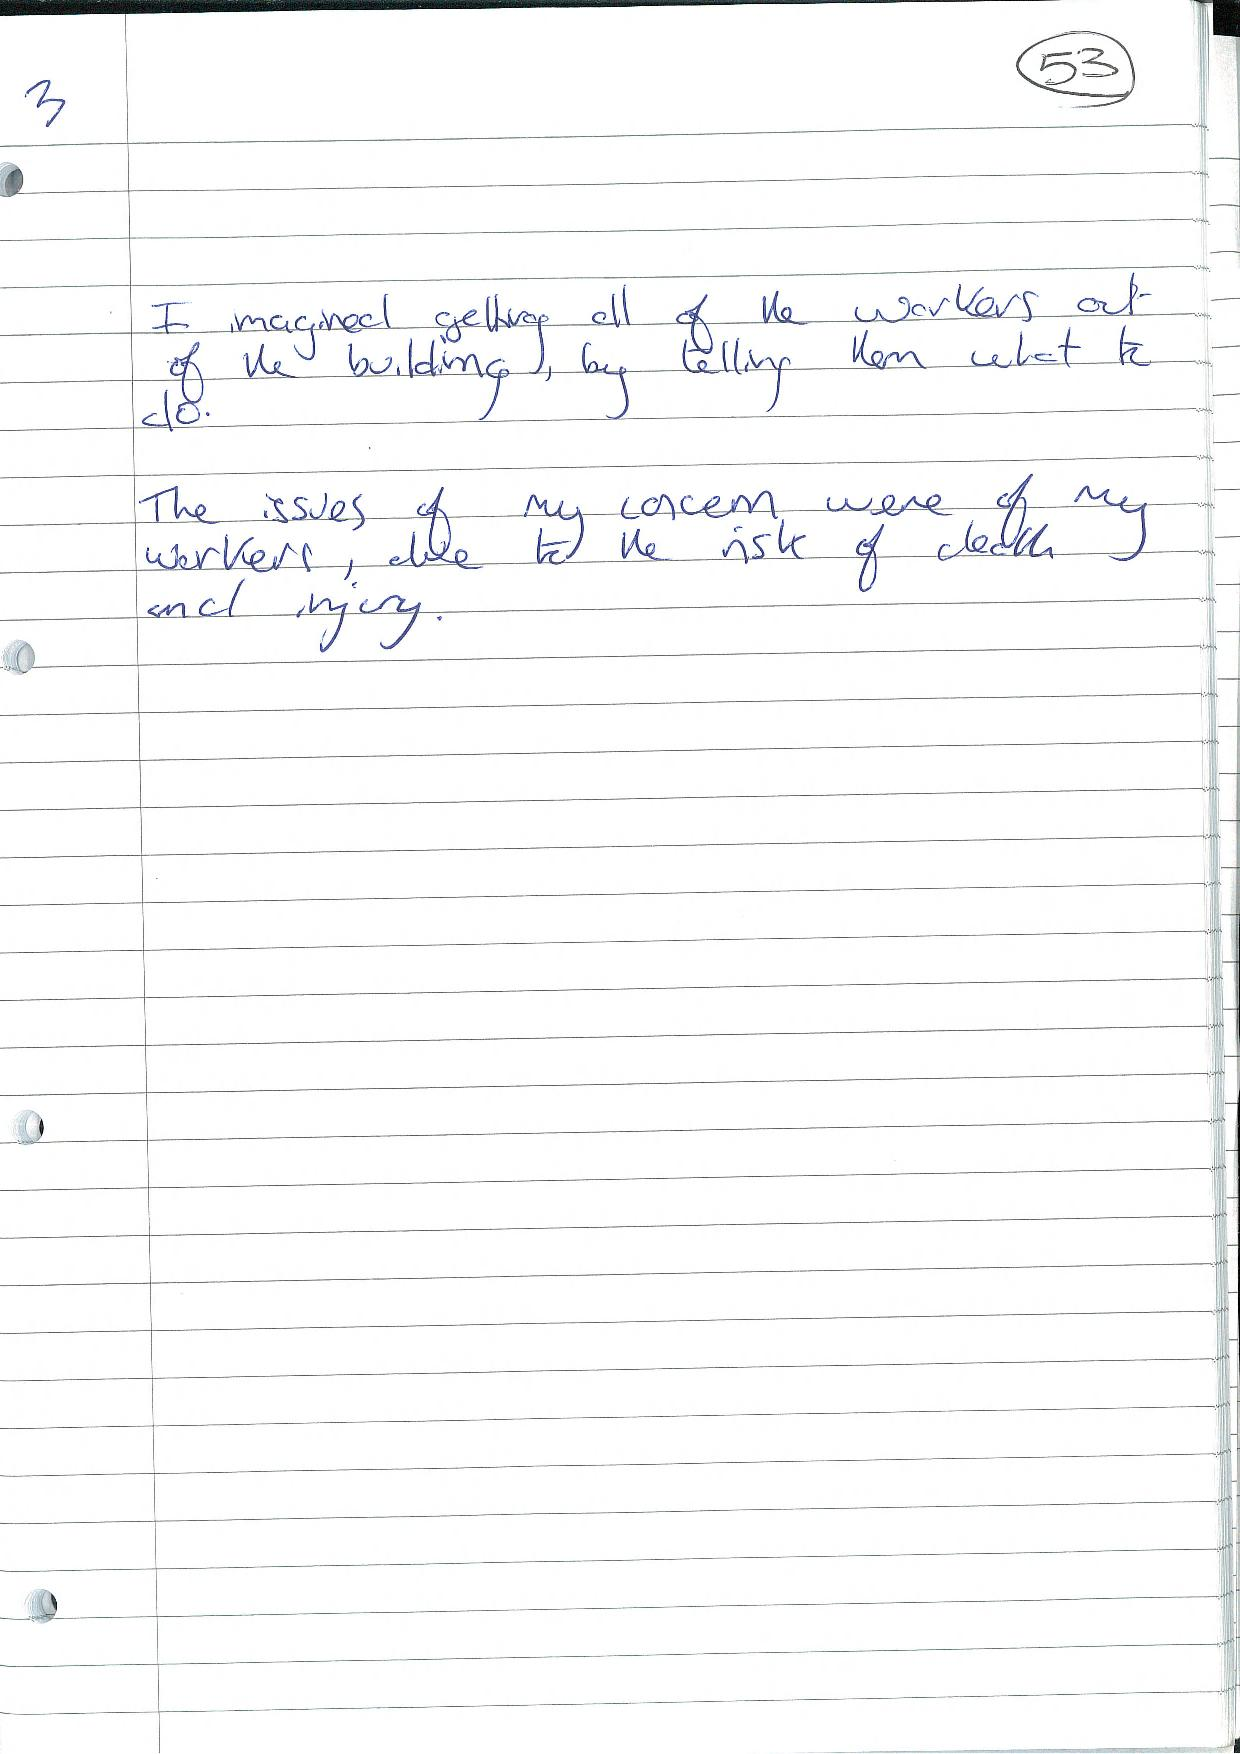 53
3
I imagined getting all of the workers out
of the building, by telling them what to
do.
The issues of my concern were of my
workers, due to the risk of death
and injury.